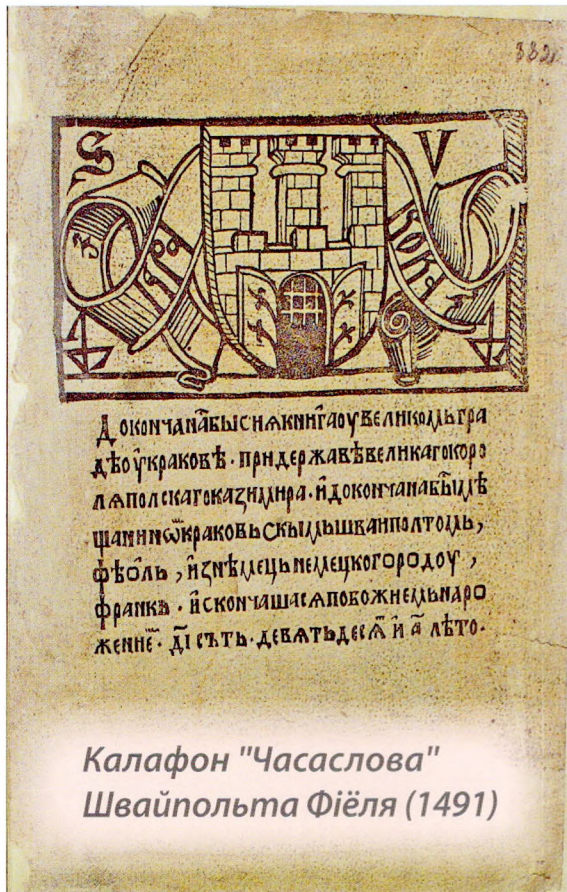 S V
Докончана бы сиꙗ книга оу великомь гра
дѣ оу краковѣ · при державѣ великаго коро
лꙗ полскаго казимира · и докончана бы мѣ
щанинѡⷨ краковьскымь шваиполтомь,
фѣоль, из нѣмець немецкого родоу,
франкь · и скончашасѧ по божиемь наро
жением҃ · д҃і сътъ · девѧтьдесѧⷮ и а҃ лѣто·
Калафон "Часаслова"
Швайпольта Фіёля (1491)